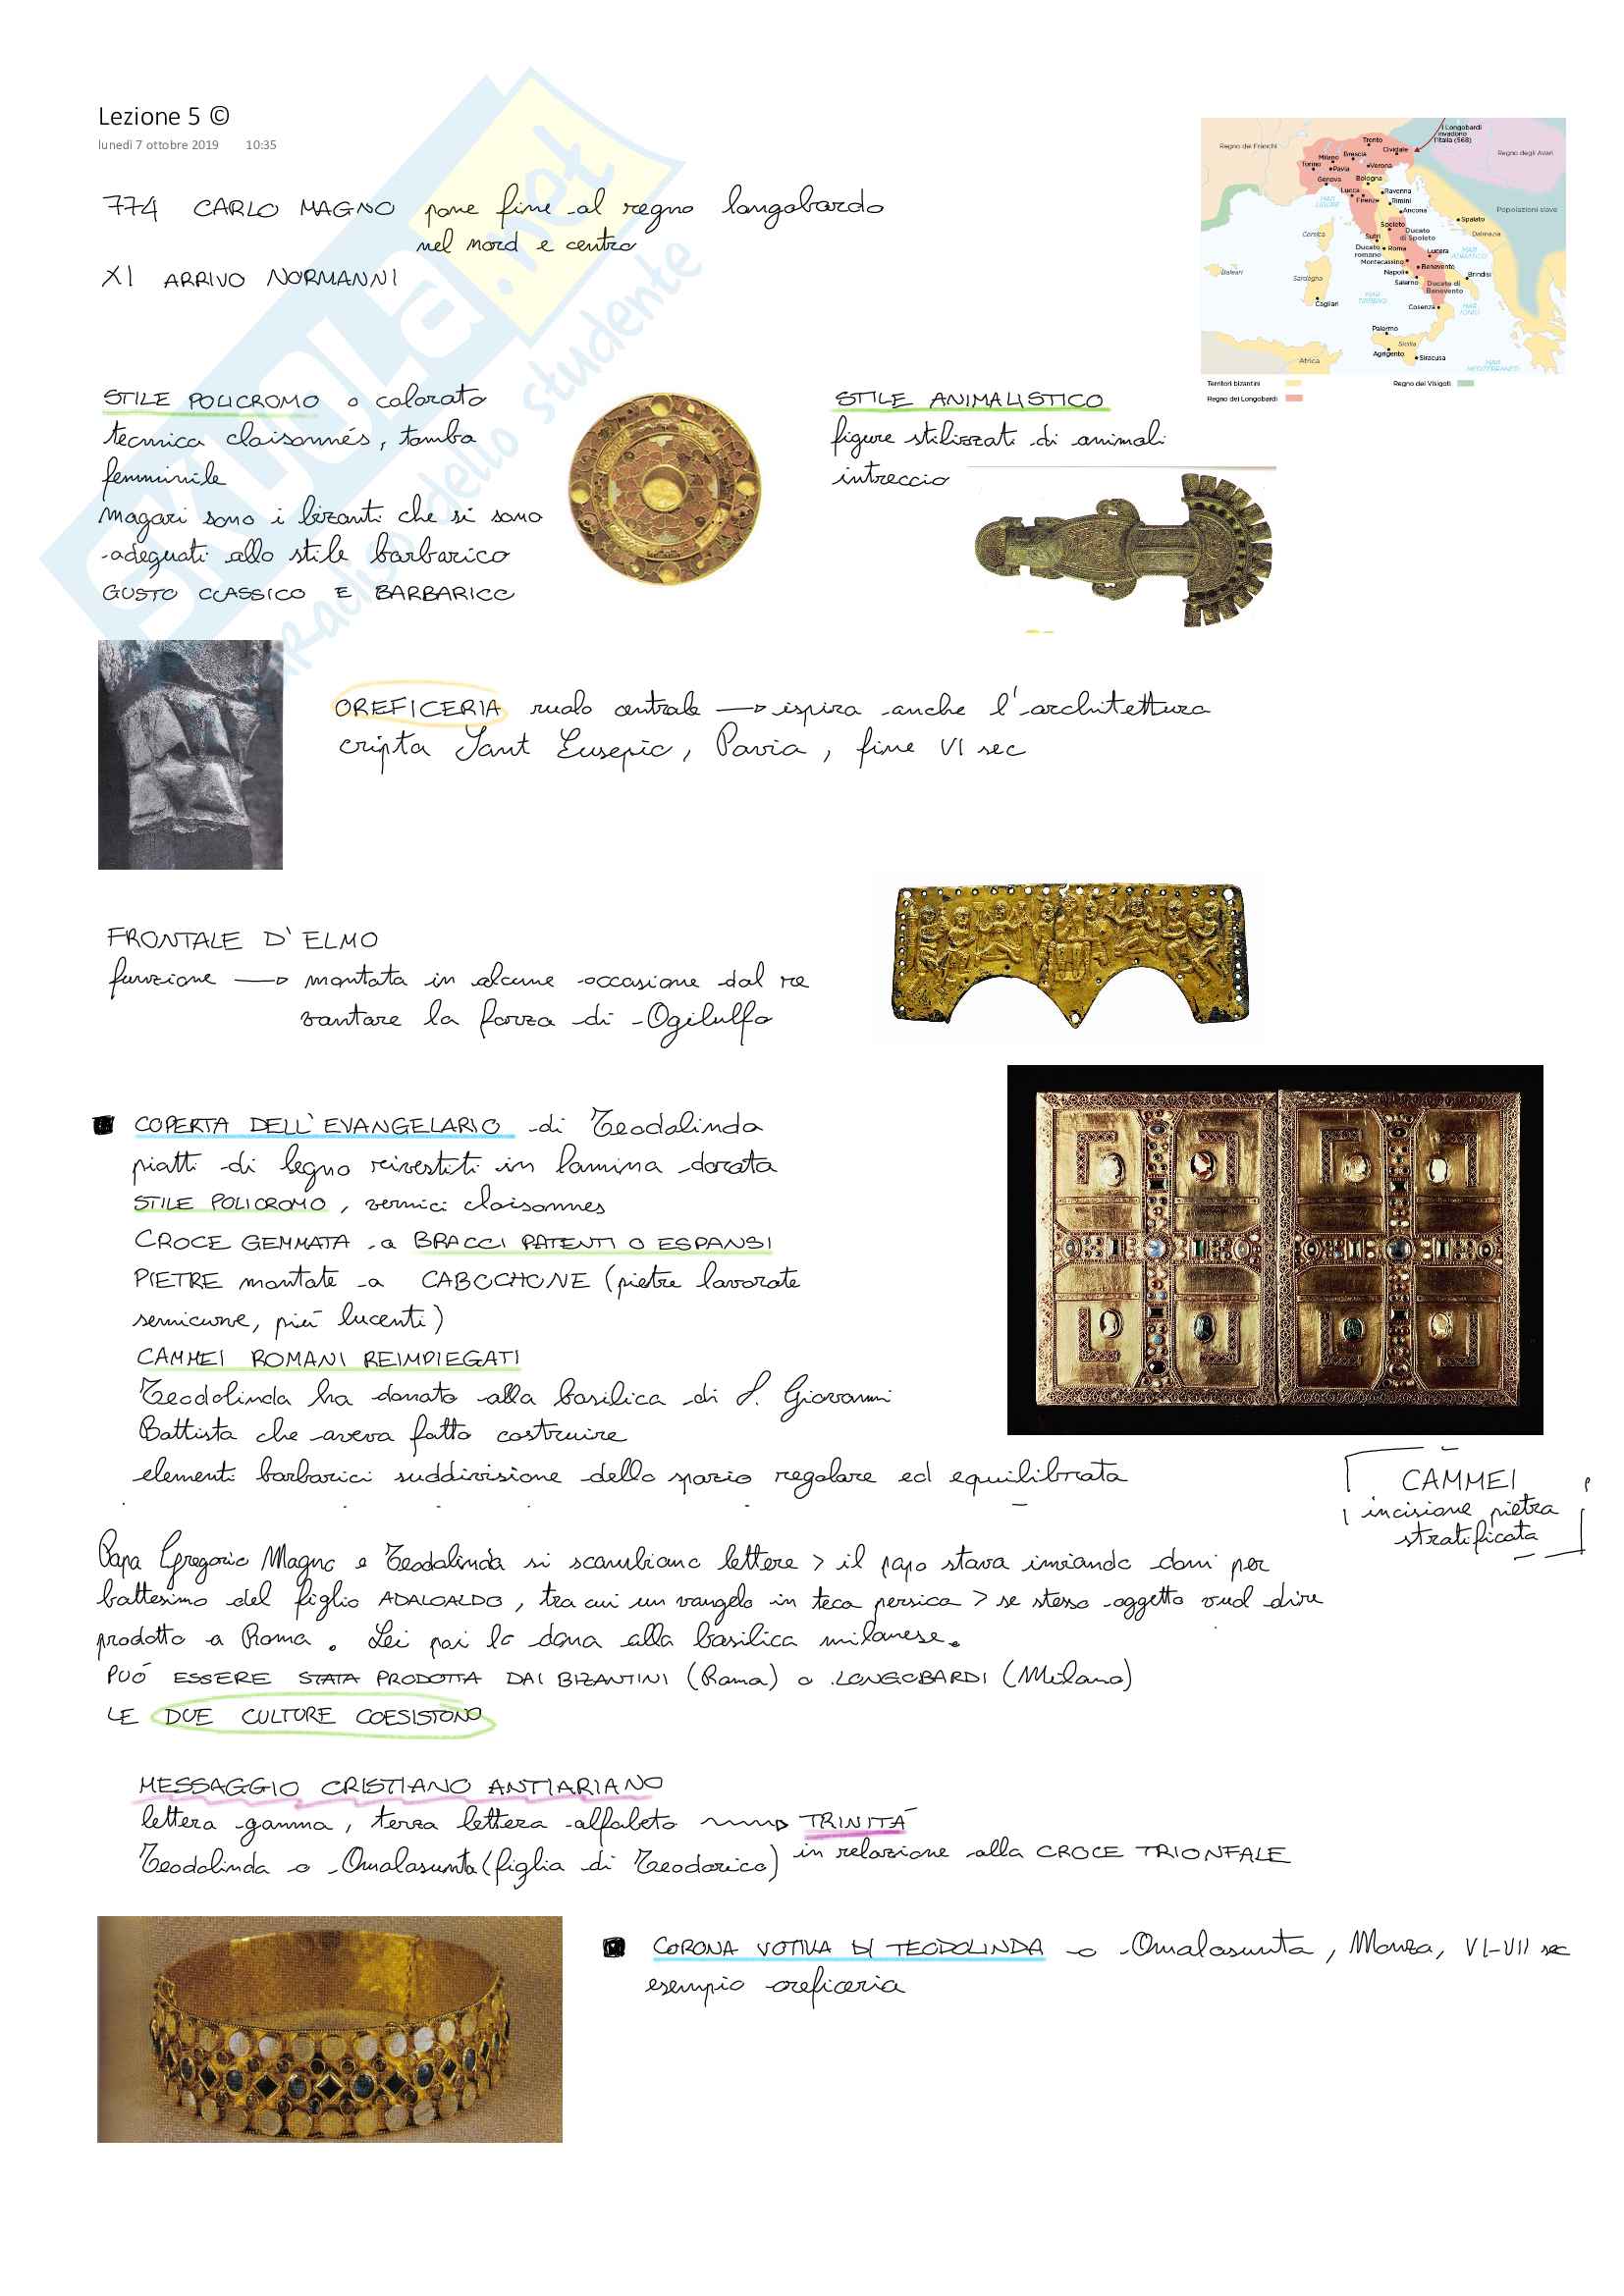 Lezione 5 ©
lunedì 7 ottobre 2019 10:35
774 CARLO MAGNO pone fine al regno longobardo
nel nord e centro
XI ARRIVO NORMANNI
I Longobardi
invadono
l'Italia (568)
Regno dei Franchi
Regno degli Avari
Trento
Cividale
Milano
Brescia
Torino
Pavia
Verona
Genova
Bologna
Lucca
Ravenna
Firenze
Rimini
Ancona
MAR
LIGURE
Popolazioni slave
Spalato
Dalmazia
Corsica
Spoleto
Ducato
di Spoleto
Sutri
Ducato
romano
Roma
Lucera
MAR
ADRIATICO
Montecassino
Benevento
Napoli
Brindisi
Salerno
Ducato di
Benevento
Baleari
Sardegna
Cagliari
MAR
TIRRENO
Cosenza
MAR
IONIO
Palermo
Sicilia
Agrigento
Siracusa
Africa
MAR
MEDITERRANEO
Territori bizantini
Regno dei Visigoti
Regno dei Longobardi
STILE POLICROMO o colorato
tecnica cloisonnés, tomba
femminile
magari sono i bizanti che si sono
adeguati allo stile barbarico
GUSTO CLASSICO E BARBARICO
STILE ANIMALISTICO
figure stilizzati di animali
intreccio
OREFICERIA ruolo centrale → ispira anche l'architettura
cripta Sant Eusepio, Pavia, fine VI sec
FRONTALE D'ELMO
funzione → montata in alcune occasione dal re
vantare la forza di Agilulfo
COPERTA DELL'EVANGELARIO di Teodolinda
piatti di legno reivestiti in lamina dorata
STILE POLICROMO, vernici cloisonnes
CROCE GEMMATA a BRACCI PATENTI O ESPANSI
PIETRE montate a CABOCHONE (pietre lavorate
semicurve, più lucenti)
CAMMEI ROMANI REIMPIEGATI
Teodolinda ha donato alla basilica di S. Giovanni
Battista che aveva fatto costruire
elementi barbarici suddivisione dello spazio regolare ed equilibrata
CAMMEI
incisione pietra
stratificata
Papa Gregorio Magno e Teodolinda si scambiano lettere > il papa stava inviando doni per
battesimo del figlio ADALOALDO, tra cui un vangelo in teca persica > se stesso oggetto vuol dire
prodotto a Roma. Lei poi lo dona alla basilica milanese.
PUÓ ESSERE STATA PRODOTTA DAI BIZANTINI (Roma) o LONGOBARDI (Milano)
LE DUE CULTURE COESISTONO
MESSAGGIO CRISTIANO ANTIARIANO
lettera gamma, terza lettera alfabeto → TRINITÁ
in relazione alla CROCE TRIONFALE
Teodolinda o Amalasunta (figlia di Teodorico)
CORONA VOTIVA DI TEODOLINDA o Amalasunta, Monza, VI-VII sec
esempio oreficeria